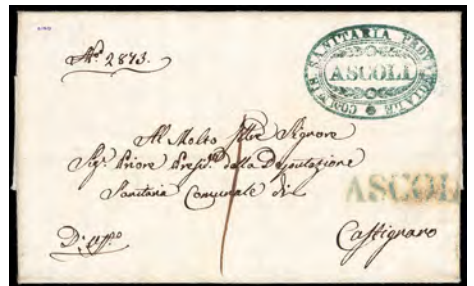 N.º 2873.
COM.NE SANITARIA PROVINCIALE
ASCOLI
Al Molto Illtre Signore
Sig.r Priore Presid.e della Deputazione
Sanitaria Comunale di
ASCOLI
D'Uff.o
Castignano